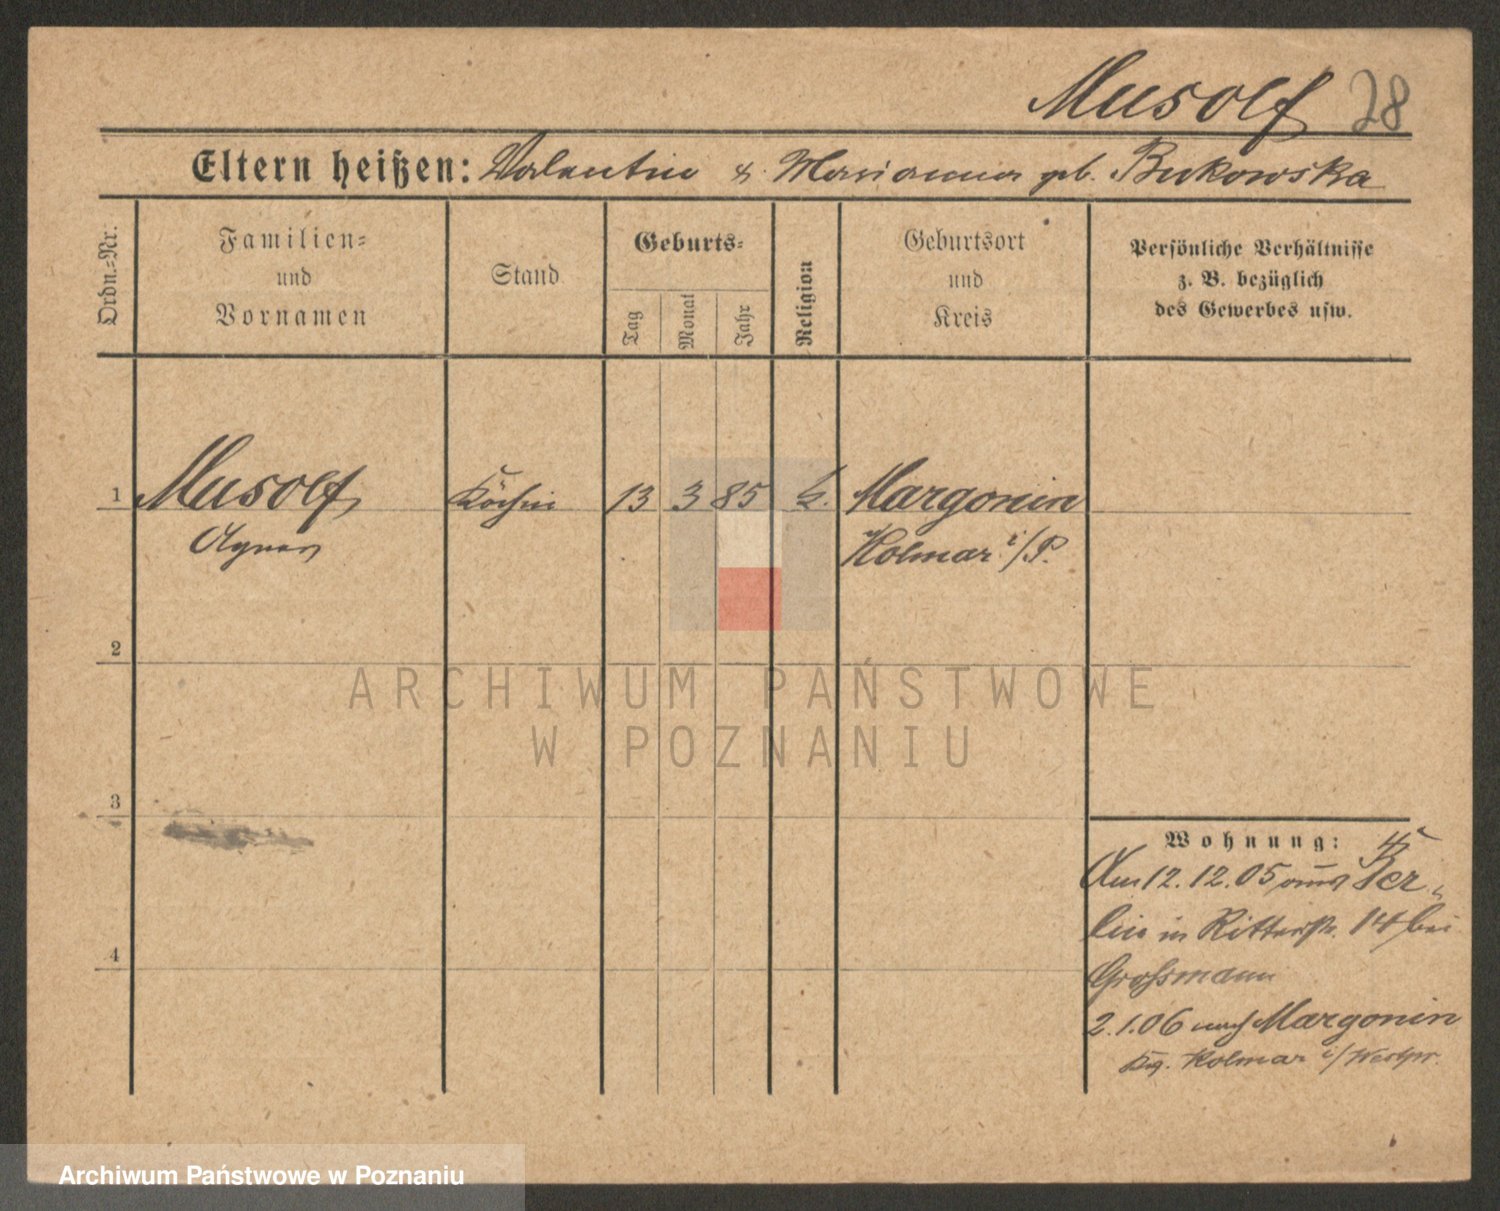 Musolf 28
Eltern heißen: Valentin & Marianna geb. Bukowska
Ordn.-Nr.
Familien-
und
Vornamen
Stand
Geburts-
Tag
Monat
Jahr
Religion
Geburtsort
und
Kreis
Persönliche Verhältnisse
z. B. bezüglich
des Gewerbes usw.
1 Musolf Köchin 13 3 85 k. Margonin
Agnes Kolmar i/P.
2
ARCHIWUM PAŃSTWOWE
W POZNANIU
3
Wohnung:
Am 12.12.05 aus Ber-
lin in Ritterstr. 14 bei
Grossmann
4
2.1.06 nach Margonin
Kolmar i/Westpr.
Archiwum Państwowe w Poznaniu